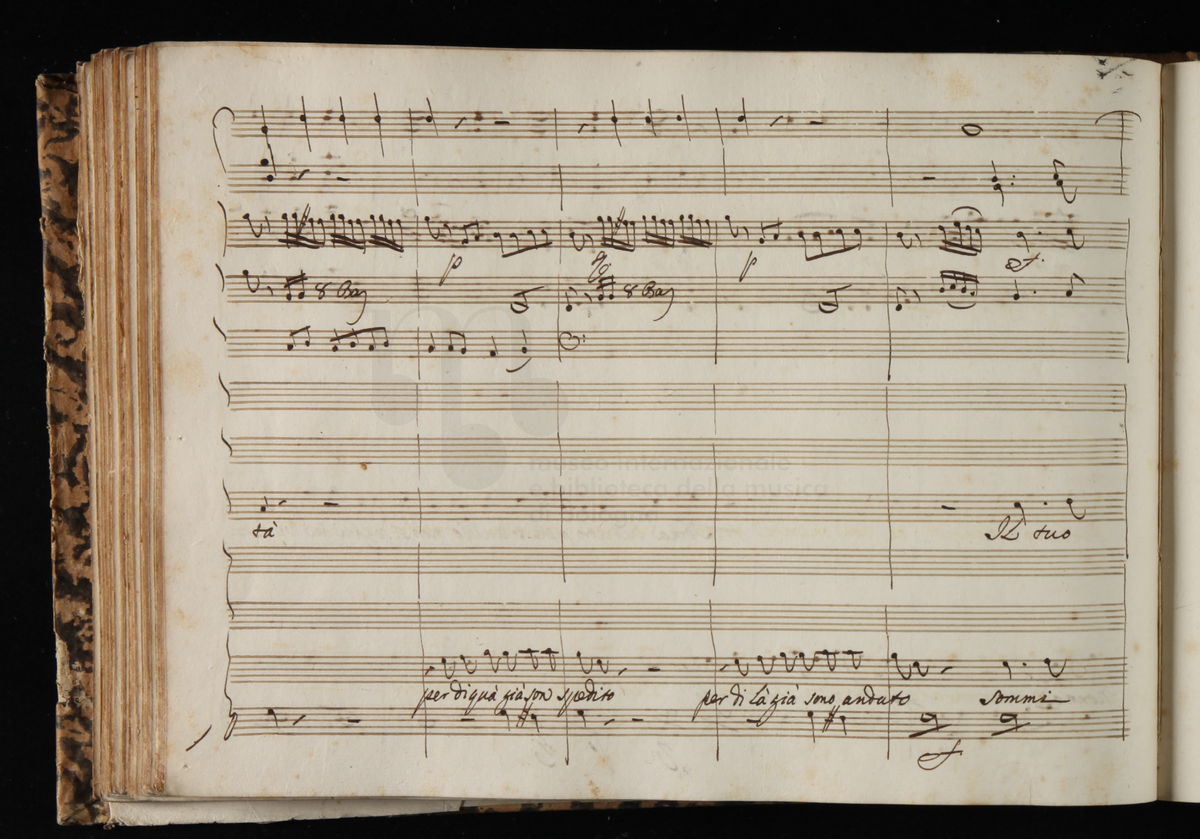 p
p
f
8 Ba
8 Ba
museo internazionale
e biblioteca della musica
di bologna
tà
Il tuo
per di quà già son spedito
per di là già sono andato
sommi
f